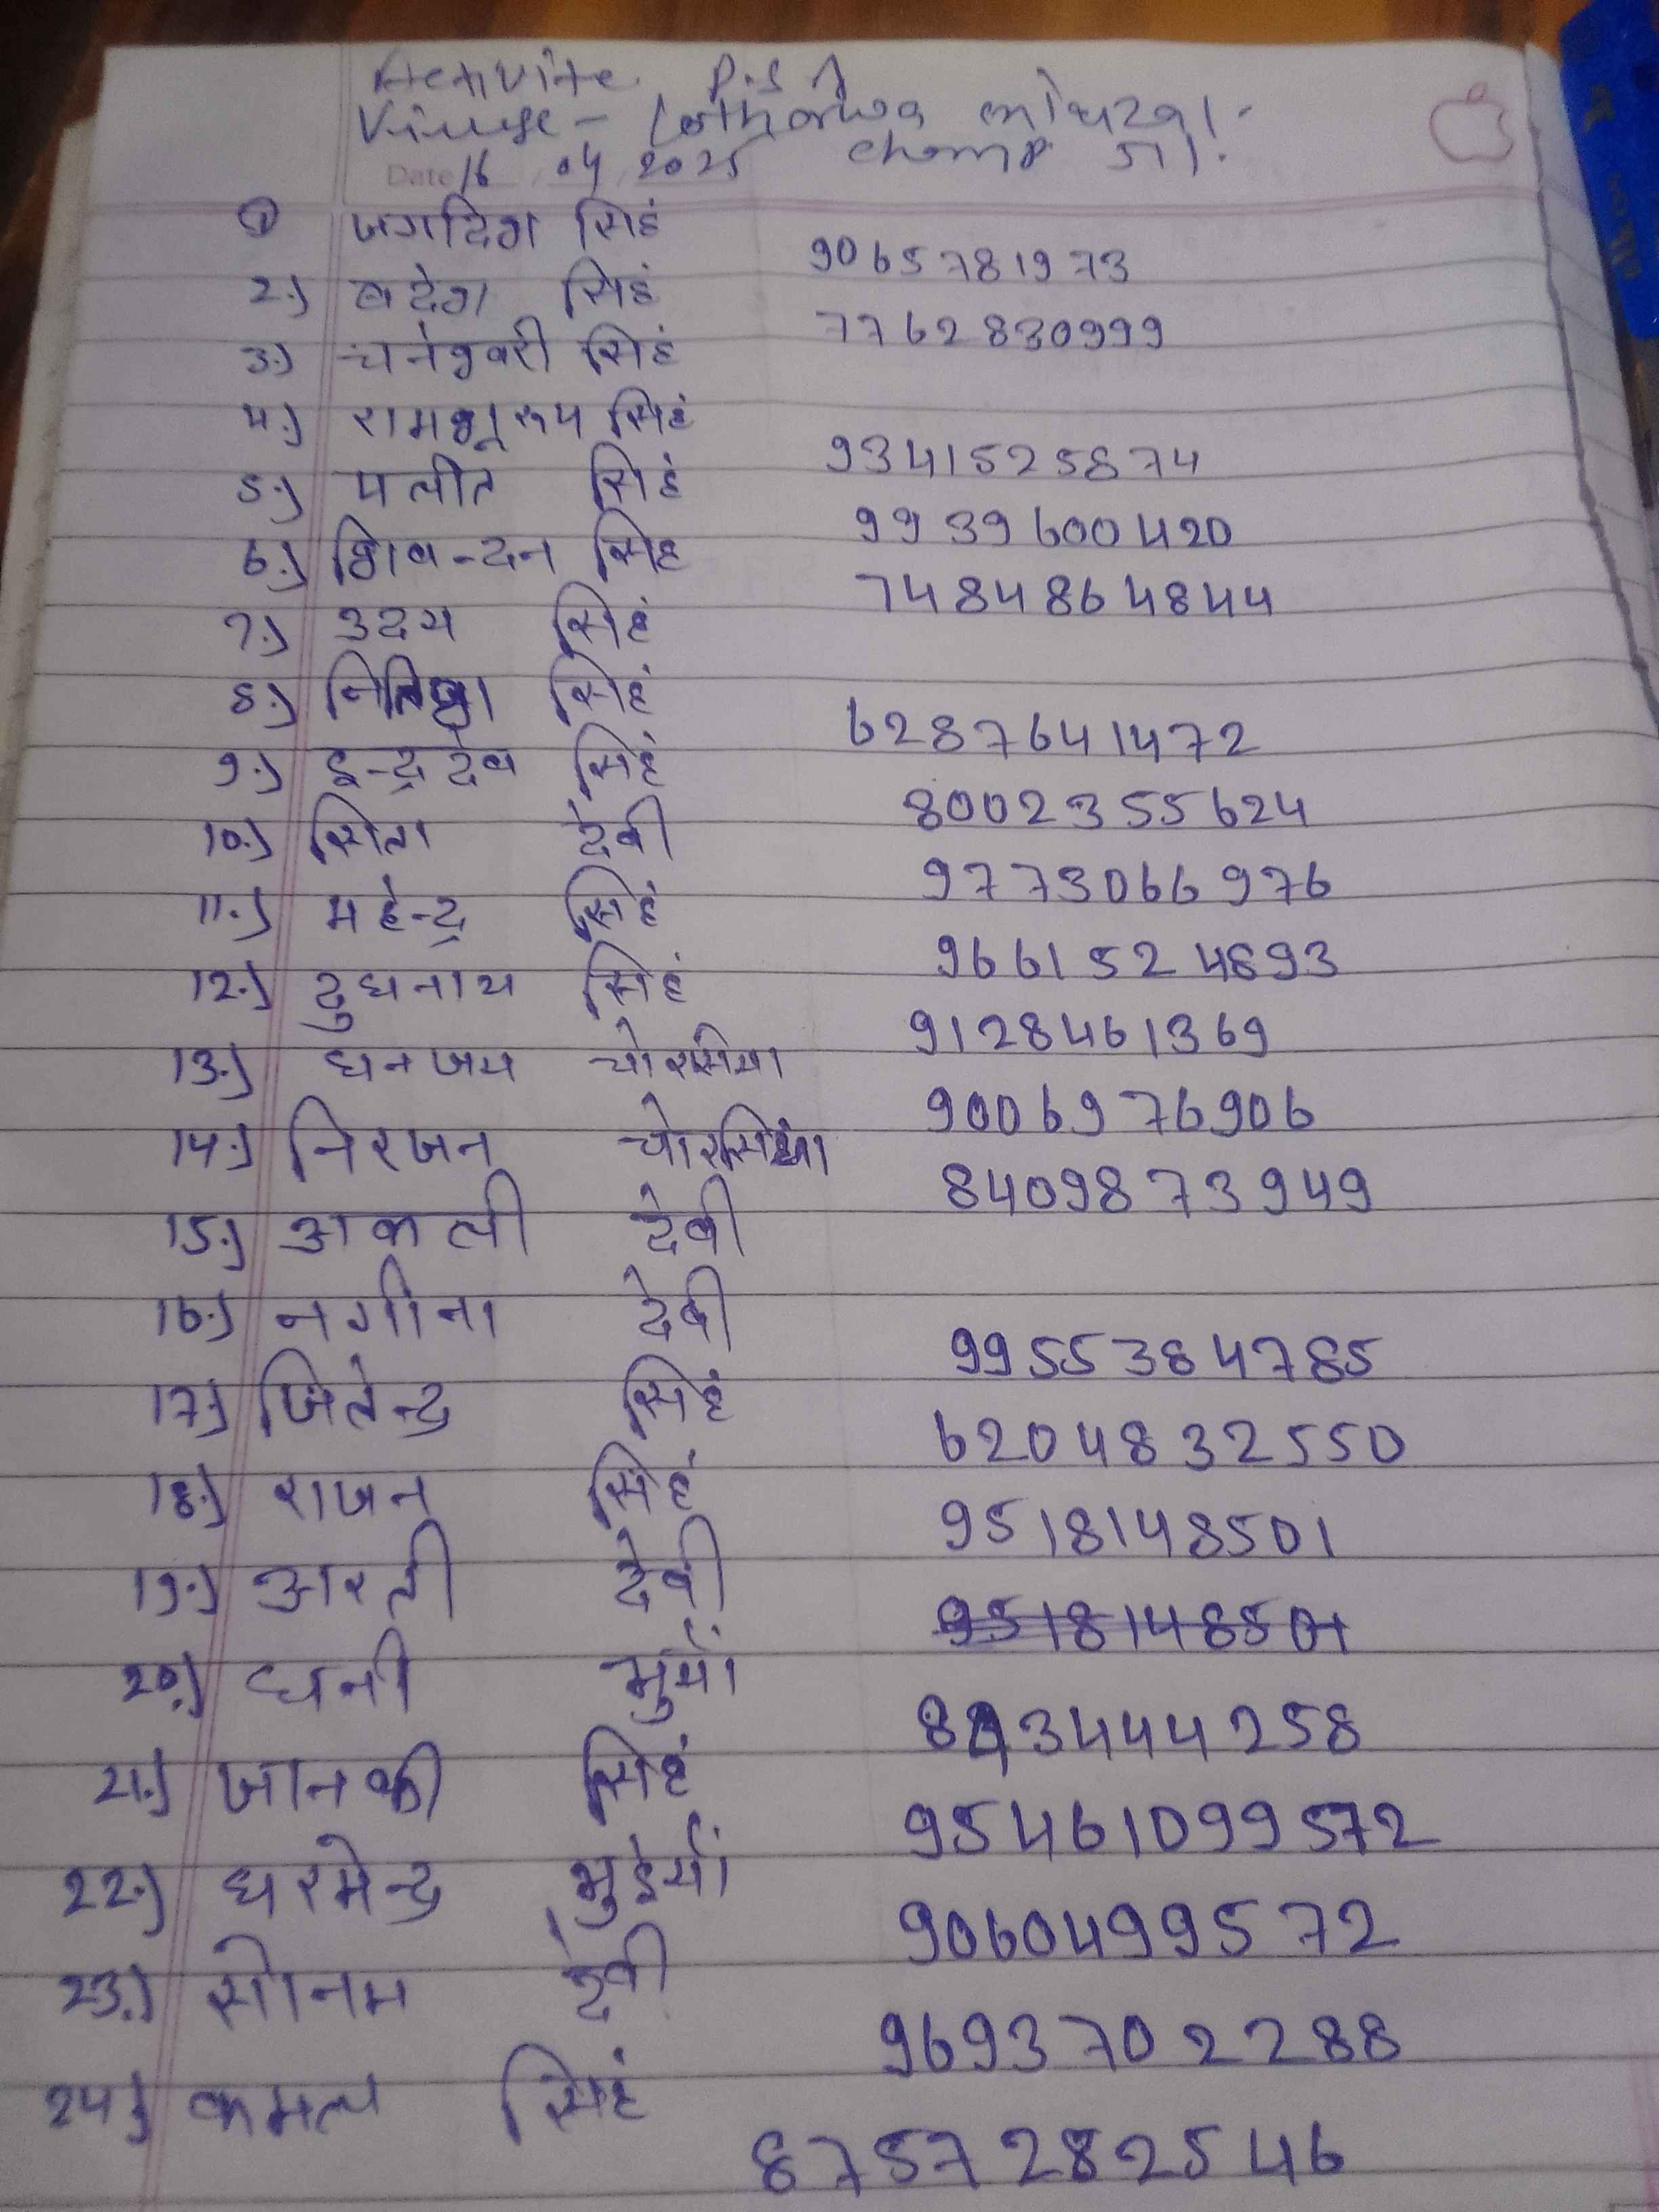 Activite P.S.A
Village - Lotharwa
Date 16 04 2025
① जगदिश सिहं
9065781973
2.) बदेश सिहं
7762830999
3.) चनेश्वरी सिहं
4.) रामशुरूप सिहं
9341525874
5.) पलीत सिहं
9939600420
6.) शिवन्दन सिहं
7484864844
7.) उदय सिहं
8.) सिहं
6287641472
9.) इन्द्रदेव सिहं
8002355624
10.) सिता देवी
9773066976
11.) महेन्द्र सिहं
9661524893
12.) दुधनाथ सिहं
9128461369
13.) धनजय चोरसीया
9006976906
14.) निरजन चोरसिया
8409873949
15.) अकली देवी
16.) नगीना देवी
9955384785
17.) जितेन्द्र सिहं
6204832550
18.) राजन सिहं
9518148501
19.) आरती देवी
9518148501
20.) धनी भुयाँ
21.) जानकी सिहं
95461099572
22.) धरमेन्द्र भुईयाँ
9060499572
23.) सोनम देवी
9693702288
24.) कमल सिहं
87572825 46